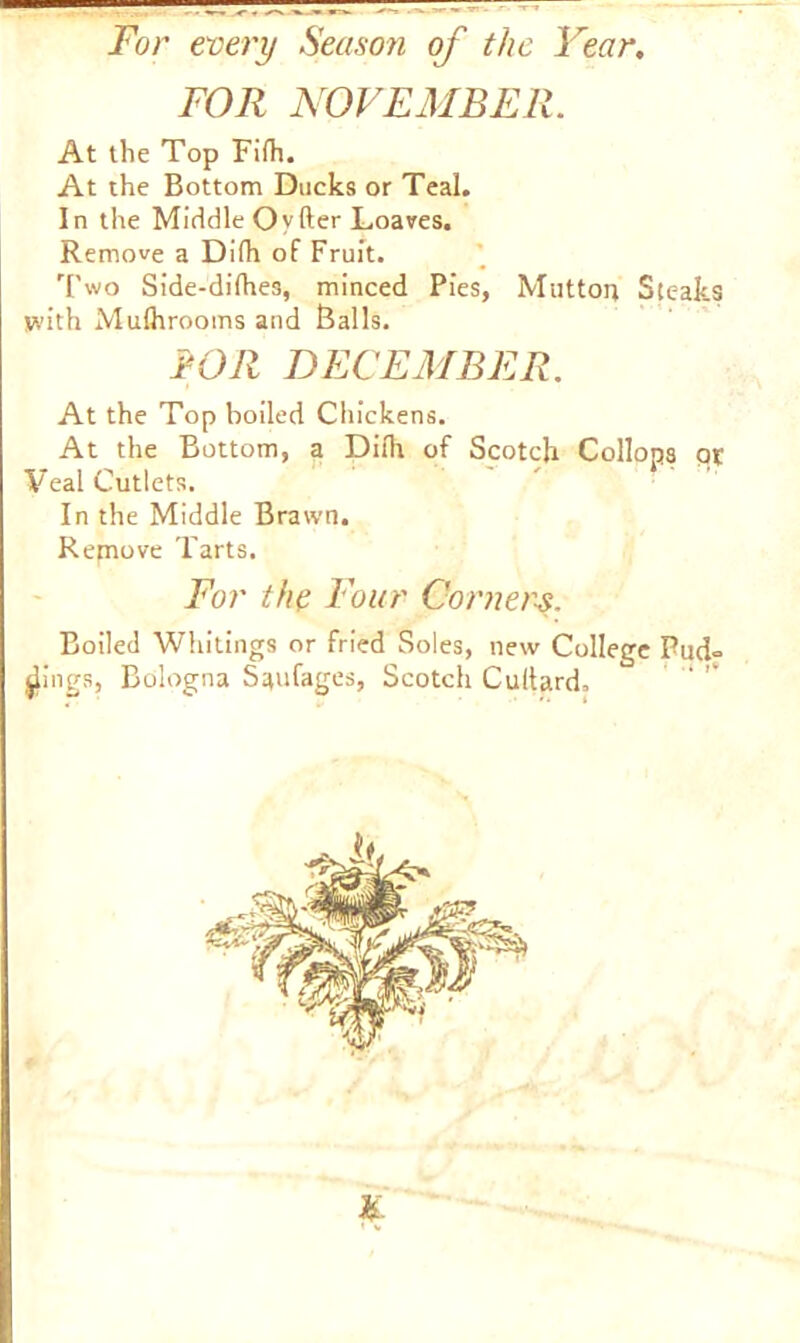 For every Season of the Year.
FOR NOVEMBER.
At the Top Fiſh.
At the Bottom Ducks or Teal.
In the Middle Oyſter Loaves.
Remove a Diſh of Fruit.
Two Side-diſhes, minced Pies, Mutton Steaks
with Muſhrooms and Balls.
FOR DECEMBER.
At the Top boiled Chickens.
At the Bottom, a Diſh of Scotch Collops or
Veal Cutlets.
In the Middle Brawn.
Remove Tarts.
For the Four Corners.
Boiled Whitings or fried Soles, new College Pud-
dings, Bologna Sauſages, Scotch Cuſtard.
K